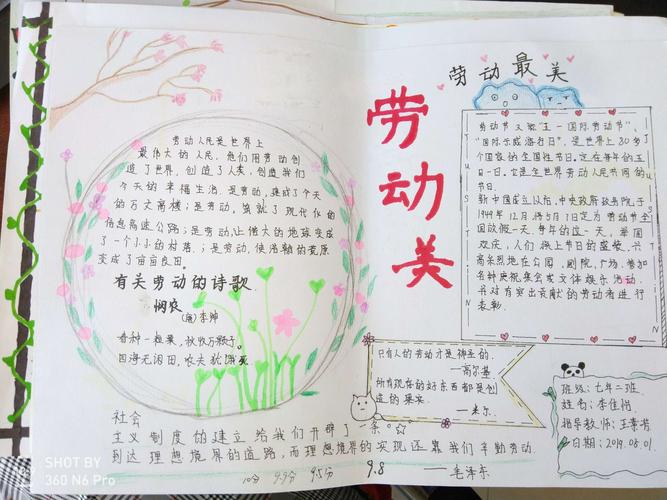 劳动人民是世界上
最伟大的人民,他们用劳动创
造了世界,创造了人类,创造我们
今天的幸福生活,是劳动,建成了今天
的万丈高楼;是劳动,筑就了现代化的
信息高速公路;是劳动让偌大的地球变成
了一个小小的村落;是劳动,使浩瀚的荒原
变成了亩亩良田。
有关劳动的诗歌
悯农
(唐)李绅
春种一粒粟,秋收万颗子。
四海无闲田,农夫犹饿死
社会
主义制度的建立给我们开辟了一条
到达理想境界的道路,而理想境界的实现还靠我们辛勤劳动
——毛泽东
10分 9.9分 9.5分 9.8
劳动美
劳动最美
劳动节又称“五一国际劳动节”、
“国际示威游行日”,是世界上80多个
个国家的全国性节日,定在每年的五
月一日。它是全世界劳动人民共同的
节日。
新中国成立以后,中央政府政务院于
1949年12月将5月1日定为劳动节全
国放假一天,每年的这一天,举国
欢庆,人们换上节日的盛装,兴
高采烈地在公园,剧院,广场,参加
各种庆祝集会或文体娱乐活动
并对有突出贡献的劳动者进行
表彰。
只有人的劳动才是神圣的。
——高尔基
所有现存的好东西都是创
造的果实。
——米尔
班级:七年二班
姓名:李佳怡
指导教师:王素芳
日期:2019.05.01.
SHOT BY
360 N6 Pro